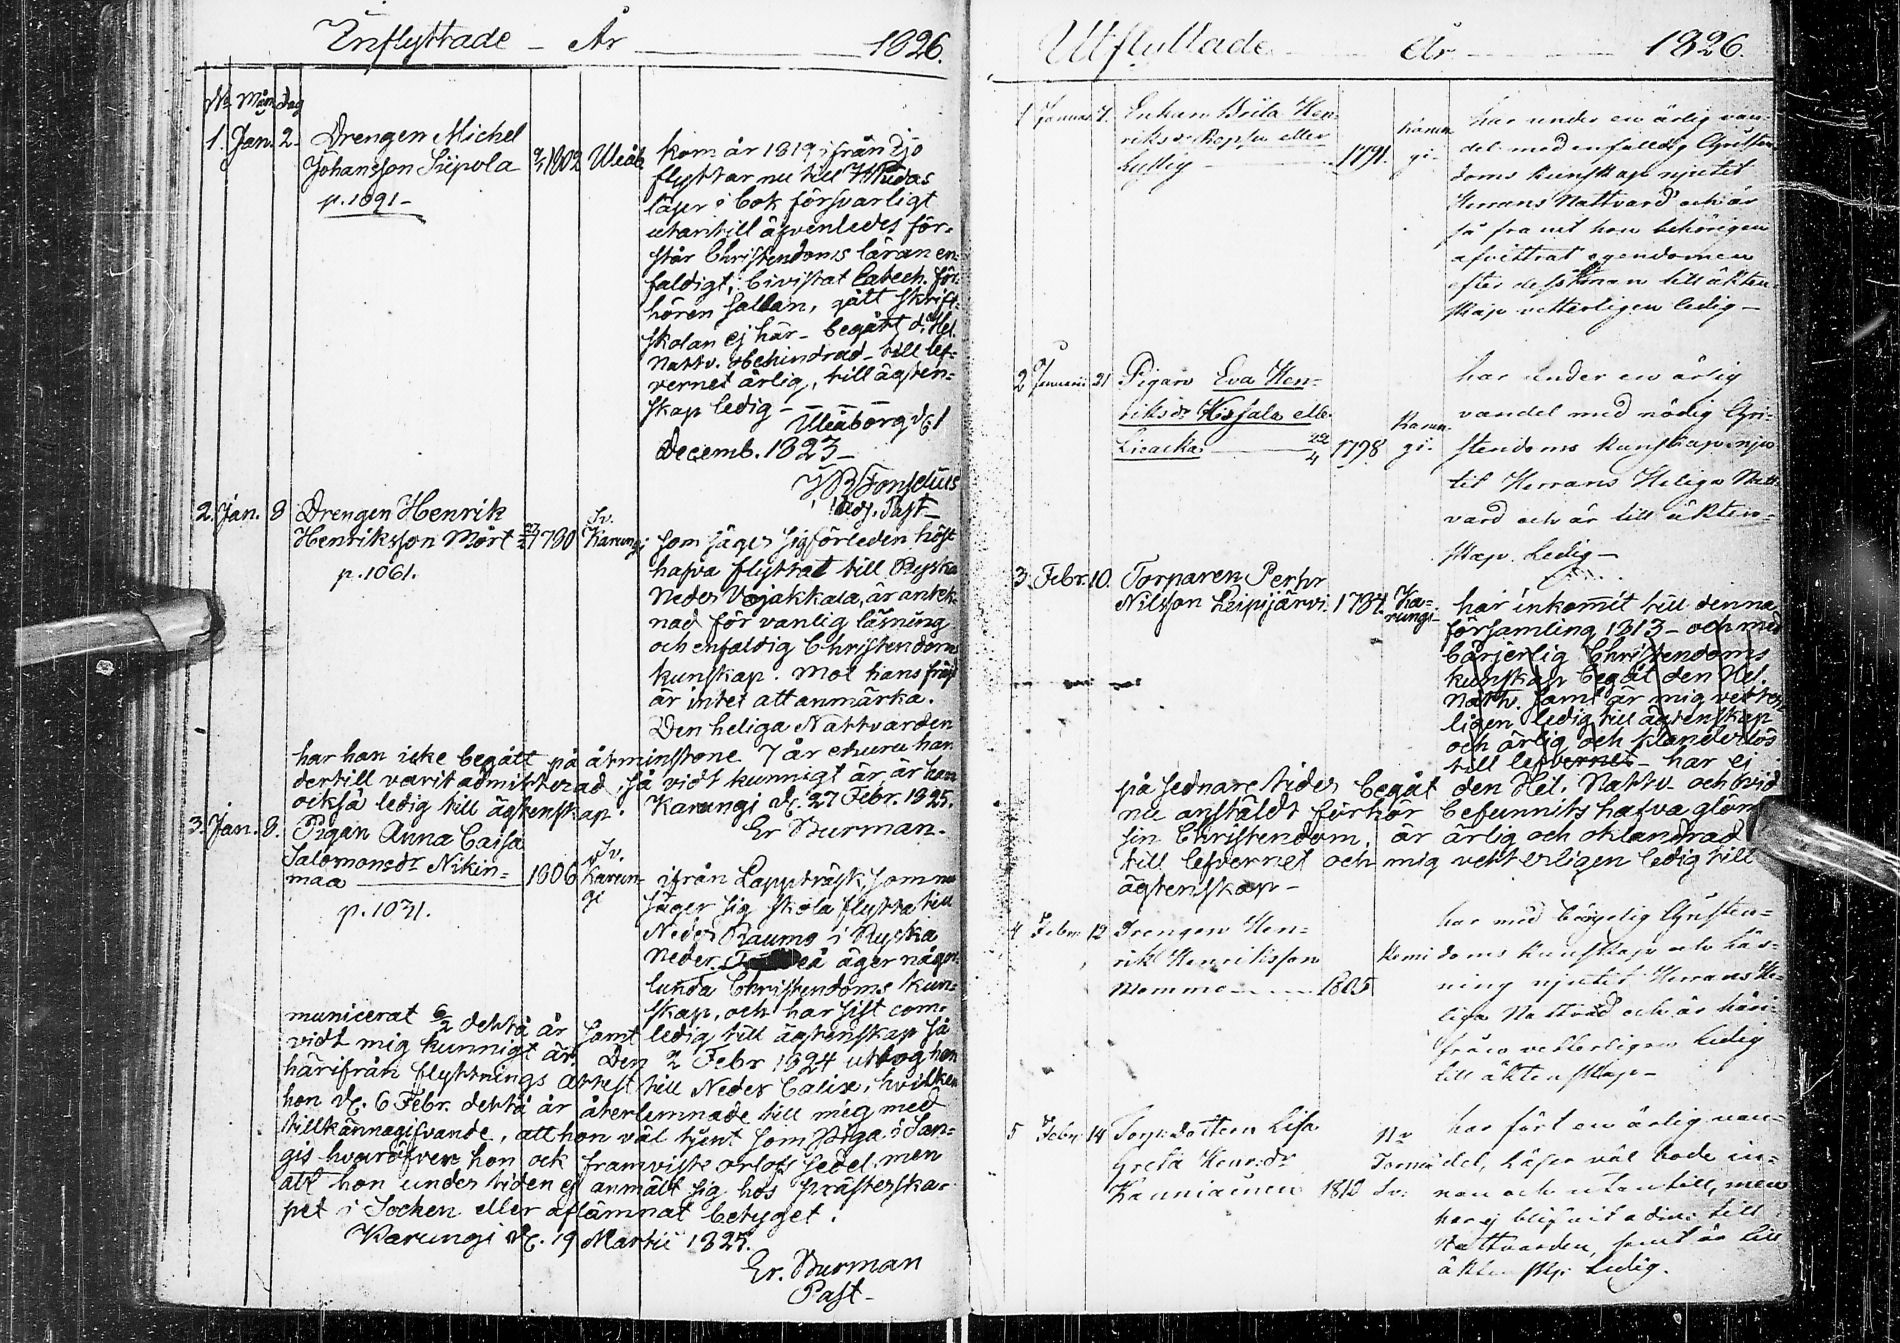 Inflyttade – År 1826.
No Mån Dag
1. Jan. 2. Drengen Michel
Johansson Siipola 1802 Uleåb.
p. 1091 –
kom år 1819 ifrån Ijo
flyttar nu till
läser i bok försvarligt
utantill äfvenledes för-
står Christendoms läran en-
faldigt, bivistat Catech. för-
hören sällan, gått skrift-
skolan ej här – begått d. Hel.
Nattv. obehindrad – till lef-
vernet ärlig, till ägten-
skap ledig –
Uleåborg d. 1
Decemb. 1823 –
Adj. Past –
2. Jan. 8 Drengen Henrik
Henriksson Mört 1780 Sv. Karungi
p. 1061.
som säges sig förleden höst
hafva flyttat till Ryska
Neder Vojakkala, är antek-
nad för vanlig läsning
och enfaldig Christendoms
kunskap. Mot hans frejd
är intet att anmärka.
Den heliga Nattvarden
har han icke begått på åtminstone 7 år ehuru han
dertill varit admitterad, så vidt kunnigt är är han
också ledig till ägtenskap. Karungi d. 27 Febr. 1825.
Er Burman.
3. Jan. 8. Pigan Anna Caisa
Salomonsdr Nikin-
maa 1806 Sv. Karun-
gi
p. 1031.
ifrån Lappträsk, som nu
säger sig skola flytta till
Neder Raumo i Ryska
Neder eå äger någor-
lunda Christendoms kun-
skap, och har sist com-
municerat 6/2 detta år samt ledig till ägtenskap så
vidt mig kunnigt är. Den 2 Febr 1824 uttog hon
härifrån flyttnings attest till Neder Calix, hvilken
hon d. 6 Febr. detta år återlemnade till mig med
tillkännagifvande, att hon väl tjent som Piga i San-
gis hvaröfver hon ock framviste orlofs sedel, men
att hon under tiden ej anmält sig hos prästerska-
pet i Socken eller aflämnat betyget.
Karungi d. 19 Martii 1825.
Er. Burman
Past –
Utflyttade År 1826.
1 Januar. 7. Enkan Brita Hen-
riksdr eller
1791. Karun-
gi.
har under en ärlig van-
del med enfaldig Christen-
doms kunskap njutit
Herrans Nattvard och är
så framt hon behörigen
afvittrat egendomen
efter dess man till äkten-
skap vetterligen ledig –
2 Januarii 21 Pigan Eva Hen-
riksdr eller
22/4 1798. Karun-
gi.
har under en ärlig
vandel med nödig Chri-
stendoms kunskap nju-
tit Herrans Heliga Natt-
vard och är till äkten-
skap Ledig –
3. Febr. 10. Torparen Pehr
Nilsson Leipijärvi. 1784. Ka-
rungi –
har inkommit till denna
församling 1813 – och med
börjerlig Christendoms
kunskap begåt den Hel.
Nattv. samt är mig vetter-
ligen ledig till ägtenskap
och ärlig och klanderlös
till lefvernet – har ej
på sednare tider begåt den Hel. Nattv. och vid
nu anstäldt förhör befunnits hafva glömt
sin Christendom, är ärlig och oklandrad
till lefvernet och mig vetterligen ledig till
ägtenskap –
4 Febr. 12 Drengen Hen-
rik Henriksson
Momma 1805 Kemi
har med börgelig Christen-
doms kunskap och läs-
ning njutit Herrans He-
liga Nattvard och är häri-
från vetterligen Ledig
till äktenskap –
5 Febr. 14 dottern Lisa
Greta Henr.dr
1810 Nr
Torneå
Sv:
har fört en ärlig van-
del, läser väl både in-
nan och utantill, men
har ej blifvit adm. till
Nattvarden, samt är till
äktensk: Ledig.